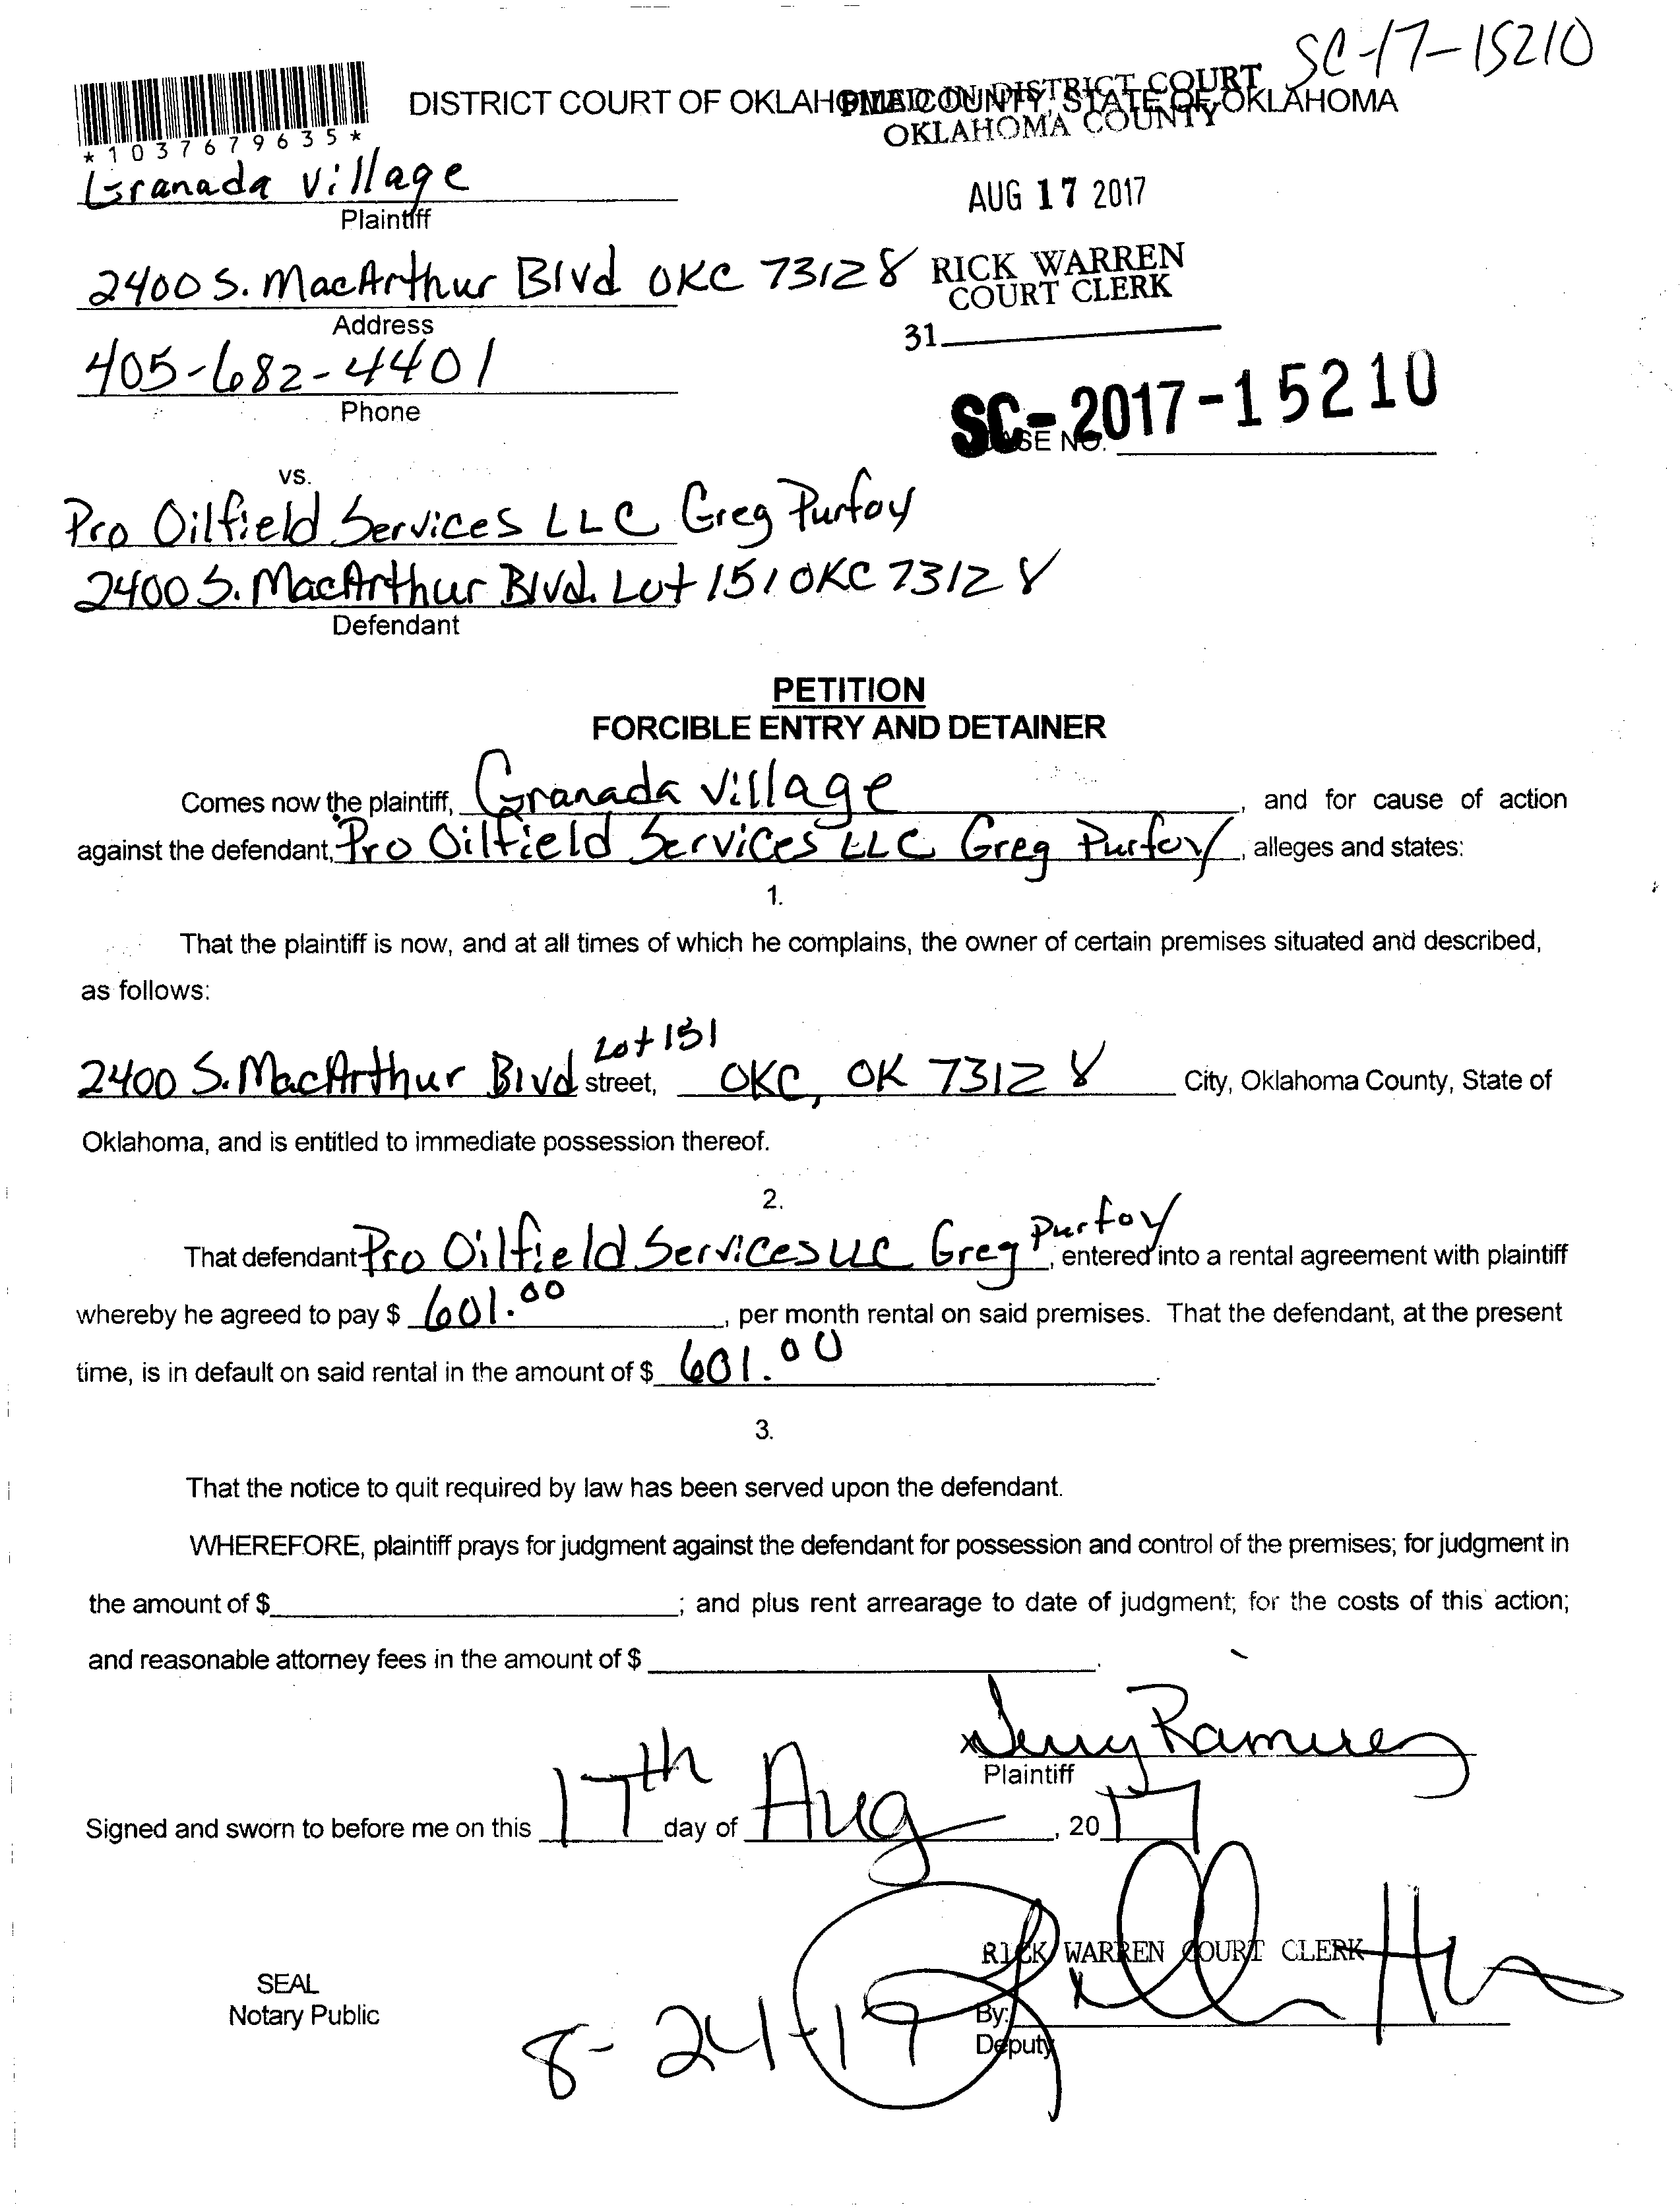 SC-17-15210
*1037679635*
DISTRICT COURT OF OKLAHOMA COUNTY, STATE OF OKLAHOMA
FILED IN DISTRICT COURT
OKLAHOMA COUNTY
Granada Village
Plaintiff
AUG 17 2017
2400 S. MacArthur Blvd OKC 73128
Address
RICK WARREN
COURT CLERK
31
405-682-4401
Phone
SC-2017-15210
CASE NO.
vs.
Pro Oilfield Services LLC Greg Purfoy
2400 S. MacArthur Blvd. Lot 151 OKC 73128
Defendant
PETITION
FORCIBLE ENTRY AND DETAINER
Comes now the plaintiff, Granada Village, and for cause of action
against the defendant, Pro Oilfield Services LLC Greg Purfoy, alleges and states:
1.
That the plaintiff is now, and at all times of which he complains, the owner of certain premises situated and described,
as follows:
2400 S. MacArthur Blvd Lot 151 street, OKC, OK 73128 City, Oklahoma County, State of
Oklahoma, and is entitled to immediate possession thereof.
2.
That defendant Pro Oilfield Services LLC Greg Purfoy, entered into a rental agreement with plaintiff
whereby he agreed to pay $ 601.00, per month rental on said premises. That the defendant, at the present
time, is in default on said rental in the amount of $ 601.00.
3.
That the notice to quit required by law has been served upon the defendant.
WHEREFORE, plaintiff prays for judgment against the defendant for possession and control of the premises; for judgment in
the amount of $ ; and plus rent arrearage to date of judgment; for the costs of this action;
and reasonable attorney fees in the amount of $ .
x Jerry Ramirez
Plaintiff
Signed and sworn to before me on this 17th day of Aug, 20 17
RICK WARREN COURT CLERK
SEAL
Notary Public
By:
Deputy
8-24-17